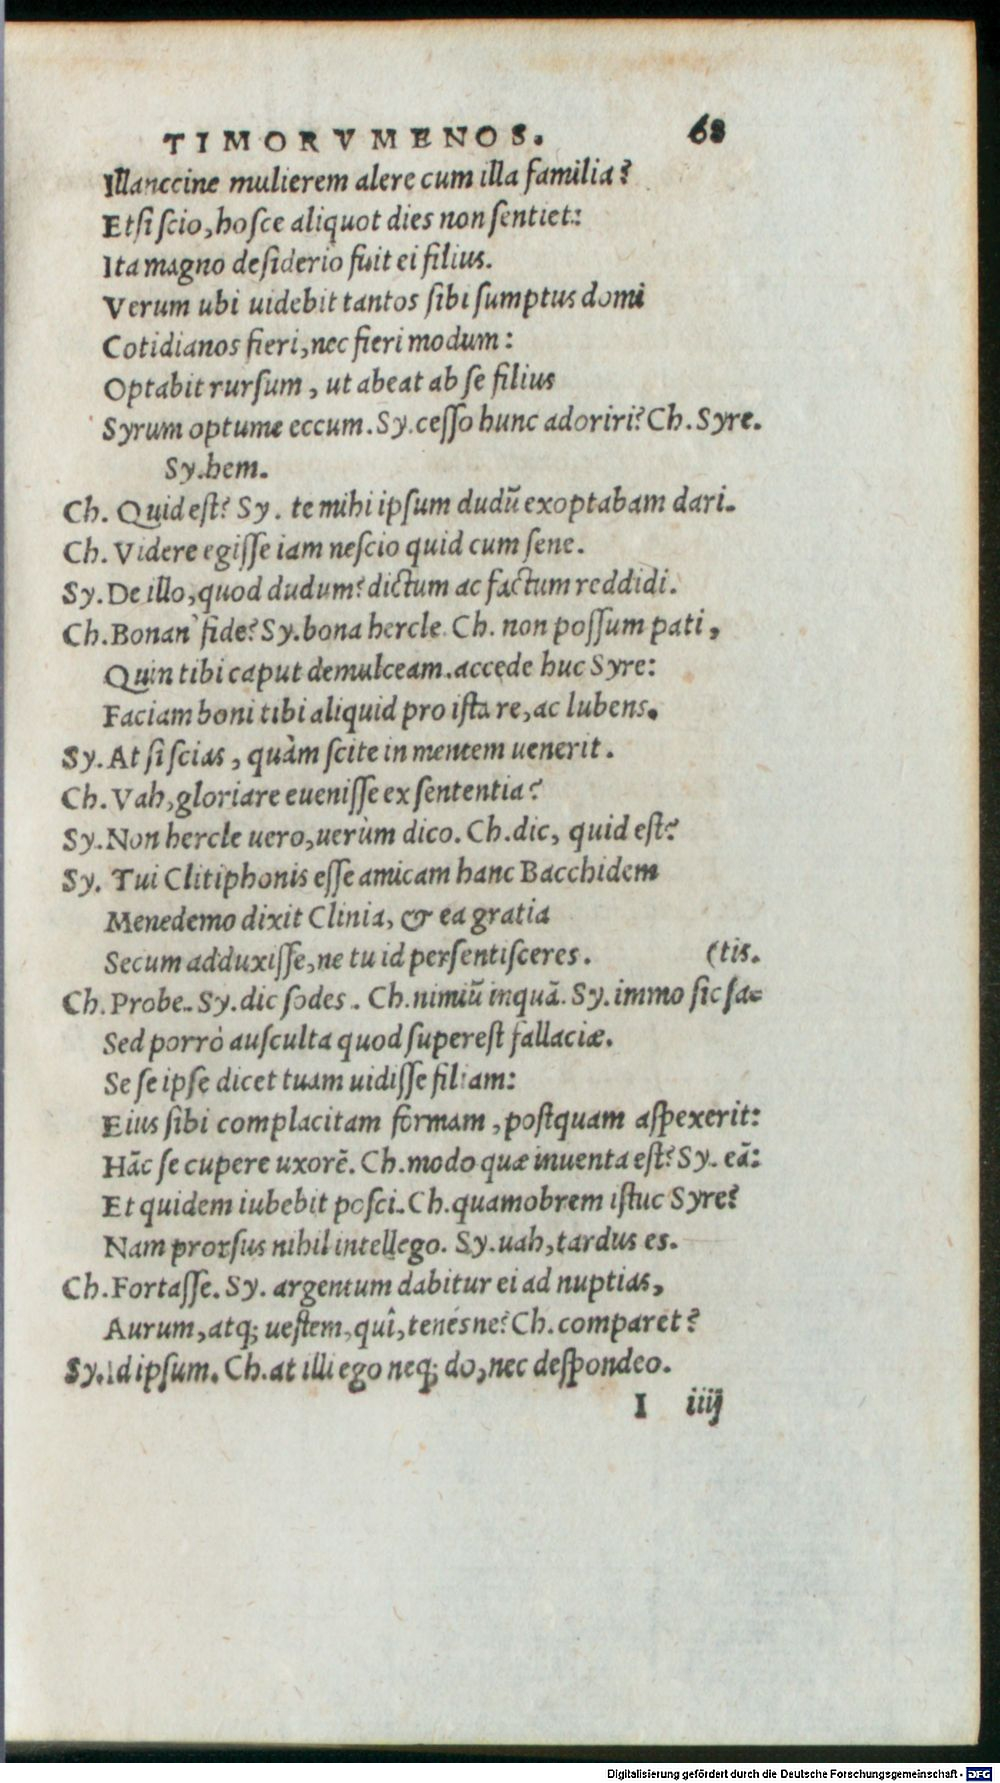 TIMORVMENOS. 68
Illanccine mulierem alere cum illa familia?
Etsi scio, hosce aliquot dies non sentiet:
Ita magno desiderio fuit ei filius.
Verum ubi uidebit tantos sibi sumptus domi
Cotidianos fieri, nec fieri modum:
Optabit rursum, ut abeat ab se filius
Syrum optume eccum. Sy. cesso hunc adoriri? Ch. Syre.
Sy. hem.
Ch. Quid est? Sy. te mihi ipsum dudũ exoptabam dari.
Ch. Videre egisse iam nescio quid cum sene.
Sy. De illo, quod dudum? dictum ac factum reddidi.
Ch. Bonan' fide? Sy. bona hercle. Ch. non possum pati,
Quin tibi caput demulceam. accede huc Syre:
Faciam boni tibi aliquid pro ista re, ac lubens.
Sy. At si scias, quàm scite in mentem uenerit.
Ch. Vah, gloriare euenisse ex sententia?
Sy. Non hercle uero, uerùm dico. Ch. dic, quid est?
Sy. Tui Clitiphonis esse amicam hanc Bacchidem
Menedemo dixit Clinia, & ea gratia
Secum adduxisse, ne tu id persentisceres. (tis.
Ch. Probe. Sy. dic sodes. Ch. nimiũ inquã. Sy. immo sic sa=
Sed porrò ausculta quod superest fallaciæ.
Se se ipse dicet tuam uidisse filiam:
Eius sibi complacitam formam, postquam aspexerit:
Hãc se cupere uxorẽ. Ch. modo quæ inuenta est? Sy. eã:
Et quidem iubebit posci. Ch. quamobrem istuc Syre?
Nam prorsus nihil intellego. Sy. uah, tardus es.
Ch. Fortasse. Sy. argentum dabitur ei ad nuptias,
Aurum, atq; uestem, quî, tenésne? Ch. comparet?
Sy. Id ipsum. Ch. at illi ego neq; do, nec despondeo.
I iiij
Digitalisierung gefördert durch die Deutsche Forschungsgemeinschaft - DFG